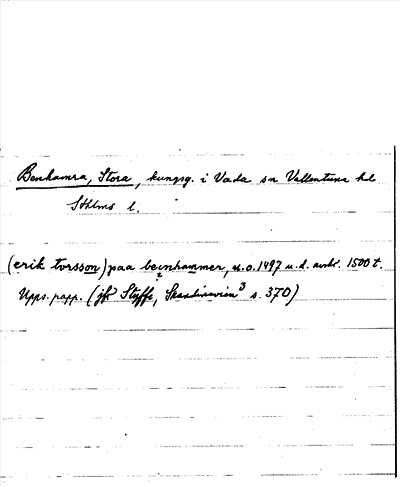 Benhamra, Stora, kungsg. i Vada sn Vallentuna hd
Sthlms l.
(erik torsson) paa beinhammer, u.o. 1497 u.d. avskr. 1500 t.
Upps. papp. (jfr Styffe, Skandinavien³ s. 370)